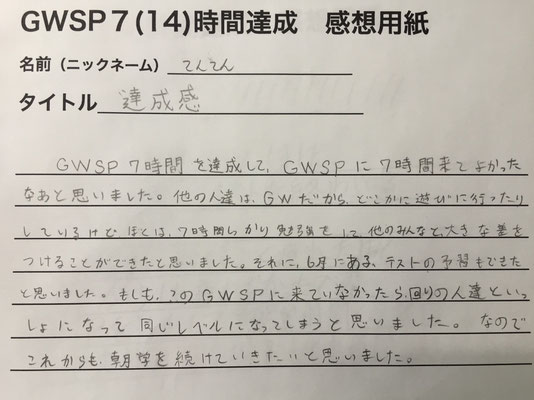 GWSP7(14)時間達成　感想用紙
名前（ニックネーム） てんてん
タイトル 達成感
GWSP 7時間を達成して、GWSPに7時間来てよかった
なあと思いました。他の人達は、GWだから、どこかに遊びに行ったり
しているけどぼくは、7時間しっかり勉強をして、他のみんなと、大きな差を
つけることができたと思いました。それに、6月にある、テストの予習もできた
と思いました。もしも、このGWSPに来ていなかったら、回りの人達といっ
しょになって同じレベルになってしまうと思いました。なので
これからも、朝学を続けていきたいと思いました。